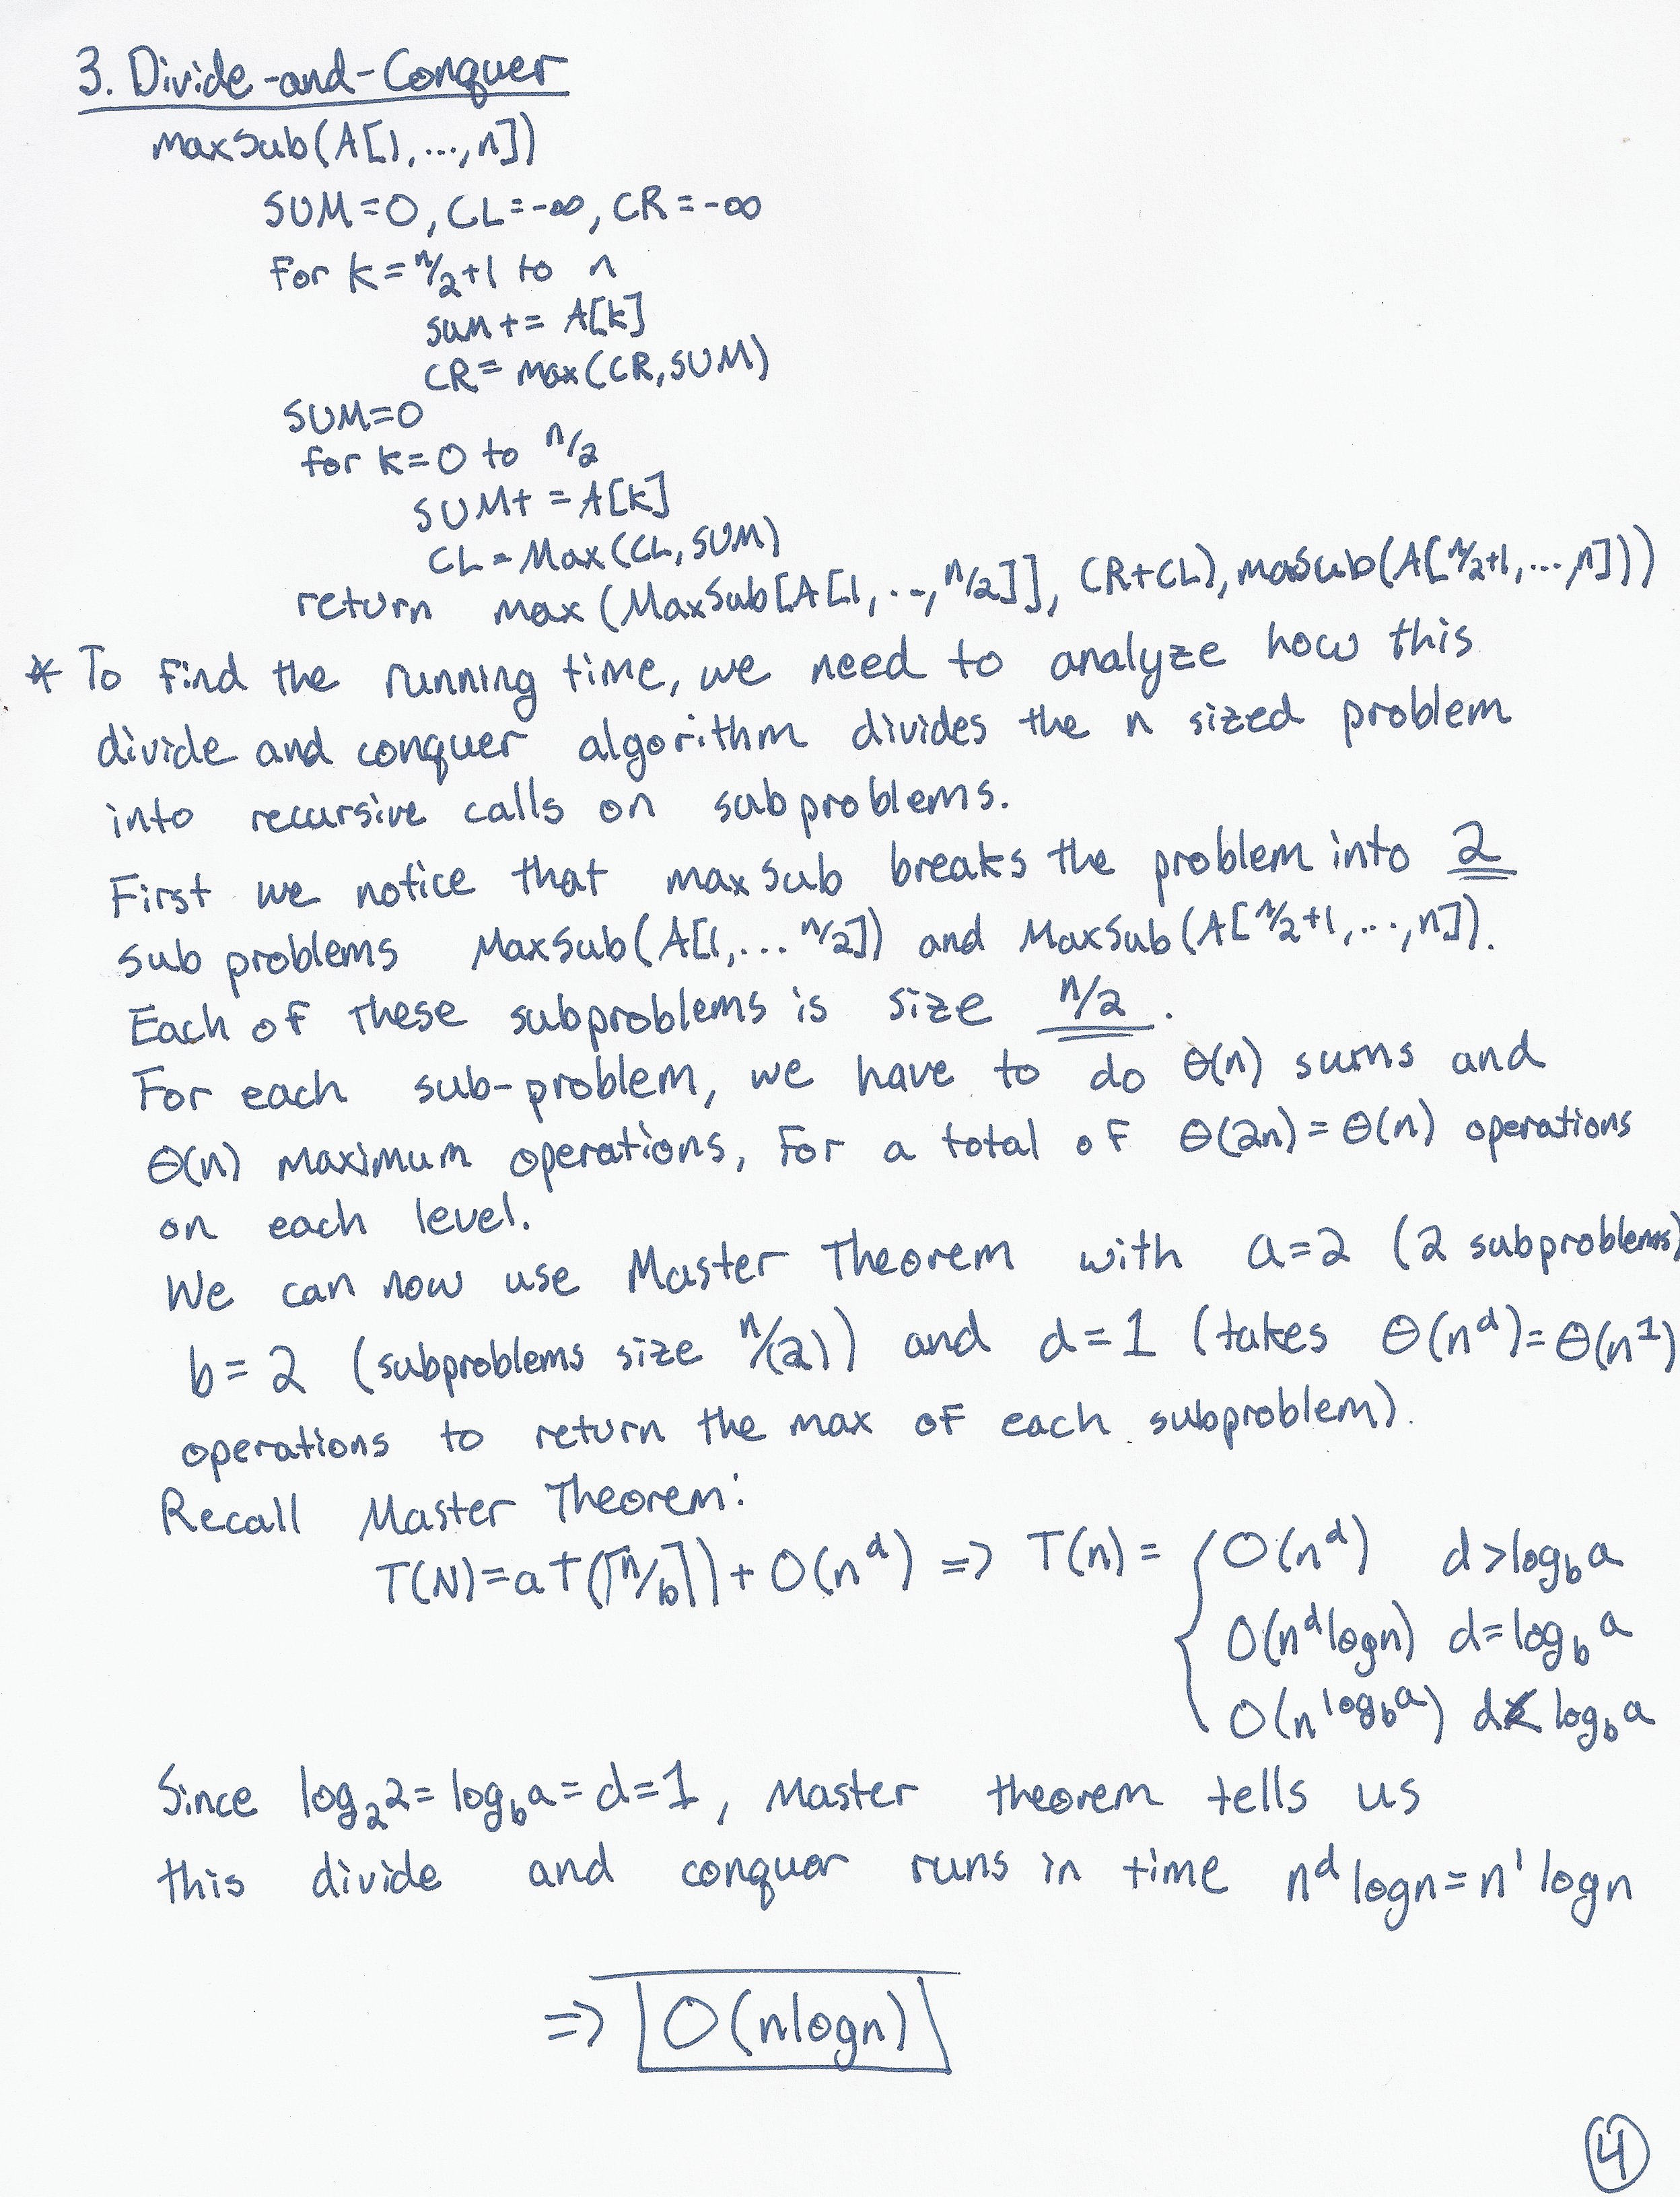 3. Divide-and-Conquer
MaxSub(A[1,...,n])
SUM=0, CL=-∞, CR=-∞
For k=n/2+1 to n
sum+= A[k]
CR= max(CR,SUM)
SUM=0
for k=0 to n/2
SUM+ =A[k]
CL=Max(CL,SUM)
return max(MaxSub[A[1,..,n/2]], CR+CL), maSub(A[n/2+1,...,n]))
* To find the running time, we need to analyze how this
divide and conquer algorithm divides the n sized problem
into recursive calls on subproblems.
First we notice that maxSub breaks the problem into 2
sub problems MaxSub(A[1,...n/2]) and MaxSub(A[n/2+1,...,n]).
Each of these subproblems is size n/2.
For each sub-problem, we have to do Θ(n) sums and
Θ(n) maximum operations, for a total of Θ(2n)=Θ(n) operations
on each level.
We can now use Master Theorem with a=2 (2 subproblems)
b=2 (subproblems size n/(2)) and d=1 (takes Θ(n^d)=Θ(n^1)
operations to return the max of each subproblem).
Recall Master Theorem:
T(N)=aT(⌈n/b⌉)+O(n^d) => T(n)= { O(n^d) d>log_b a
O(n^d logn) d=log_b a
O(n^log_b a) d< log_b a
Since log_2 2=log_b a=d=1, Master theorem tells us
this divide and conquor runs in time n^d logn=n^1 logn
=> O(nlogn)
4